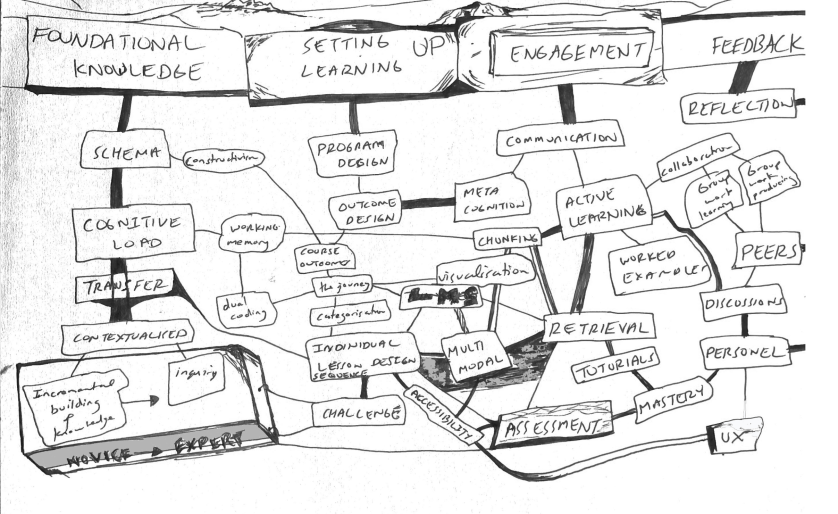 FOUNDATIONAL
KNOWLEDGE
SETTING UP
LEARNING
ENGAGEMENT
FEEDBACK
REFLECTION
SCHEMA
Constructivism
PROGRAM
DESIGN
COMMUNICATION
collaboration
Group
work
learning
Group
work
producing
OUTCOME
DESIGN
META
COGNITION
ACTIVE
LEARNING
COGNITIVE
LOAD
WORKING
memory
CHUNKING
WORKED
EXAMPLES
PEERS
COURSE
OUTCOMES
TRANSFER
the journey
visualisation
LMS
dual
coding
Categorisation
DISCUSSIONS
CONTEXTUALISED
INDIVIDUAL
LESSON DESIGN
SEQUENCE
MULTI
MODAL
RETRIEVAL
TUTORIALS
PERSONEL
Incremental
building
of
knowledge
inquiry
CHALLENGE
ACCESSIBILITY
ASSESSMENT
MASTERY
UX
NOVICE → EXPERT